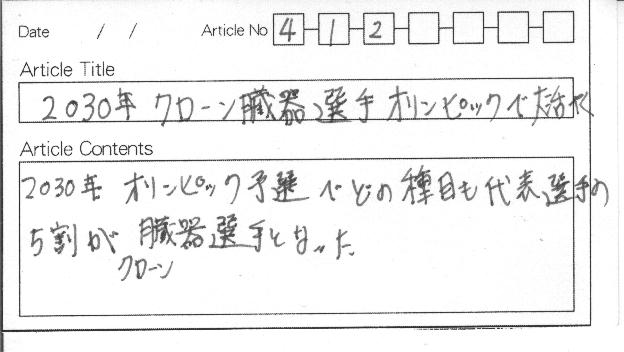 Date / / Article No 4 1 2
Article Title
2030年 クローン臓器選手 オリンピックで大活や
Article Contents
2030年 オリンピック予選でどの種目も代表選手の
5割が 臓器選手となった
クローン